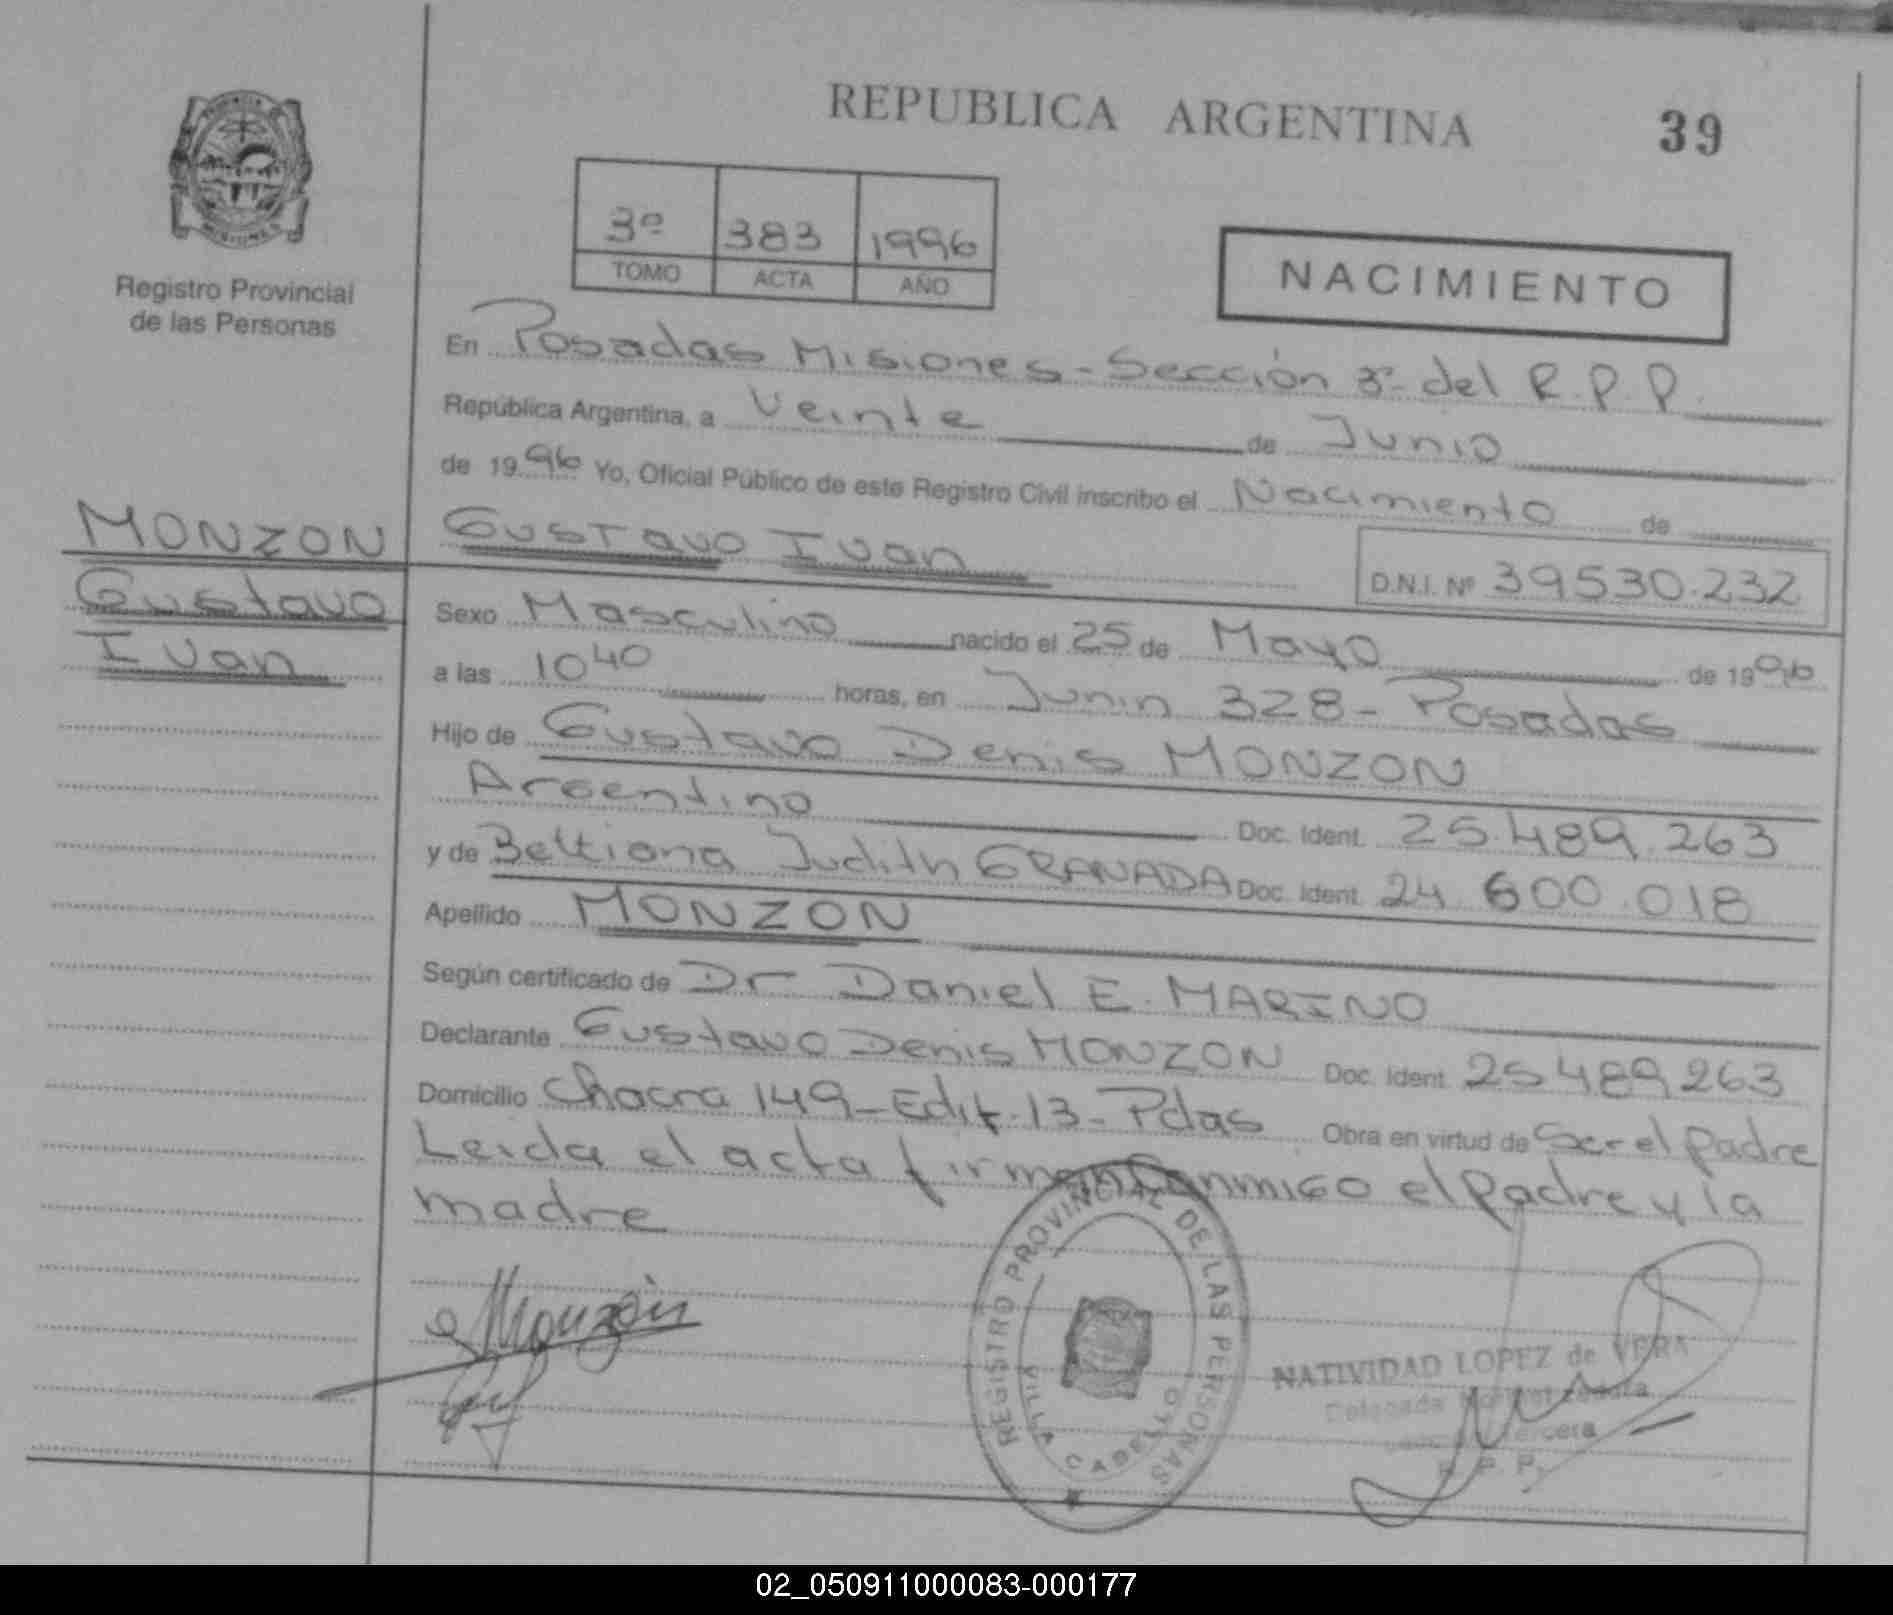 REPUBLICA ARGENTINA 39
3º 383 1996
TOMO ACTA AÑO
NACIMIENTO
MISIONES
Registro Provincial
de las Personas
En Posadas Misiones - Sección 3º del R.P.P.
República Argentina, a Veinte de Junio
de 1996 Yo, Oficial Público de este Registro Civil inscribo el Nacimiento de
MONZON Gustavo Ivan D.N.I. Nº 39530.232
Gustavo
Ivan
Sexo Masculino nacido el 25 de Mayo de 1996
a las 10 40 horas, en Junin 328 - Posadas
Hijo de Gustavo Denis MONZON
Argentino Doc. Ident. 25.489.263
y de Judith GRANADA Doc. Ident. 24.600.018
Apellido MONZON
Según certificado de Dr Daniel E. MARINO
Declarante Gustavo Denis MONZON Doc. Ident. 25489263
Domicilio Chacra 149 - Edif. 13 - Pdas Obra en virtud de Ser el padre
Leida el acta firman Conmigo el padre y la
madre
Monzón
REGISTRO PROVINCIAL DE LAS PERSONAS
VILLA CABELLO
NATIVIDAD LOPEZ de VERA
Delegada
Tercera
R. P. P.
02_050911000083-000177